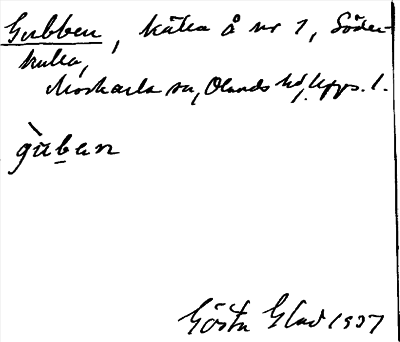 Gubben, källa å nr 1, Söder-
kulla,
Morkarla sn, Olands hd, Upps. l.
gùbεn
Gösta Glad 1937